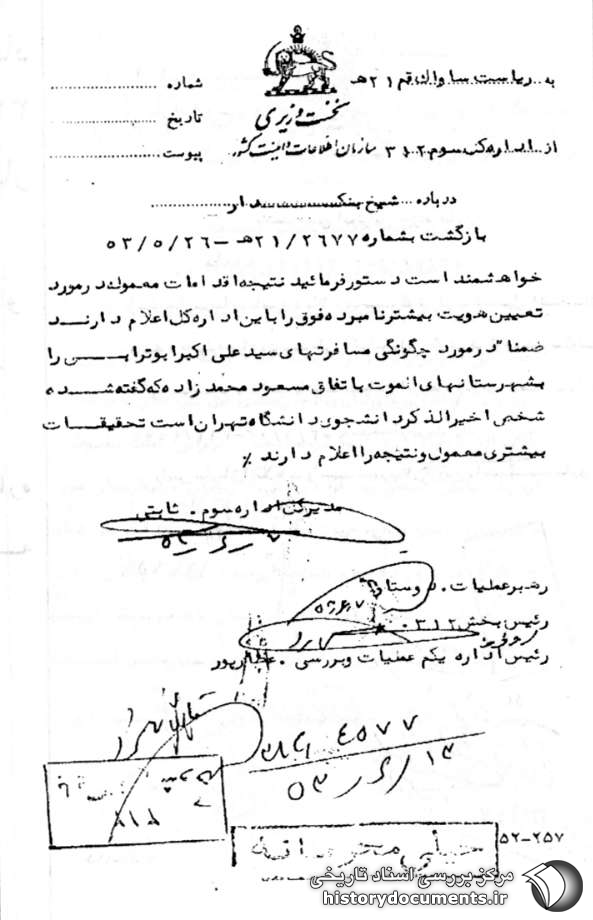 به ریاست ساواک قم ۲۱ هـ
شماره
نخست وزیری
تاریخ
از اداره کل سوم ۳۱۲
سازمان اطلاعات و امنیت کشور
پیوست
درباره شیخ بنکدار
بازگشت بشماره ۲۱/۲۶۷۷هـ - ۵۳/۵/۲۶
خواهشمند است دستور فرمائید نتیجه اقدامات معموله در مورد
تعیین هویت بیشتر نامبرده فوق را باین اداره کل اعلام دارند
ضمنا" در مورد چگونگی مسافرتهای سید علی اکبر ابوترابی را
بشهرستانهای الموت باتفاق مسعود محمد زاده که گفته شده
شخص اخیرالذکر دانشجوی دانشگاه تهران است تحقیقات
بیشتری معمول و نتیجه را اعلام دارند ٪
مدیر کل اداره سوم . ثابتی
رهبر عملیات .
رئیس بخش ۳۱۲ .
رئیس اداره یکم عملیات و بررسی .
۴۵۷۷
۵۳/۶/۱۳
۸۱۸
۵۲-۲۵۷
مرکز بررسی اسناد تاریخی
historydocuments.ir